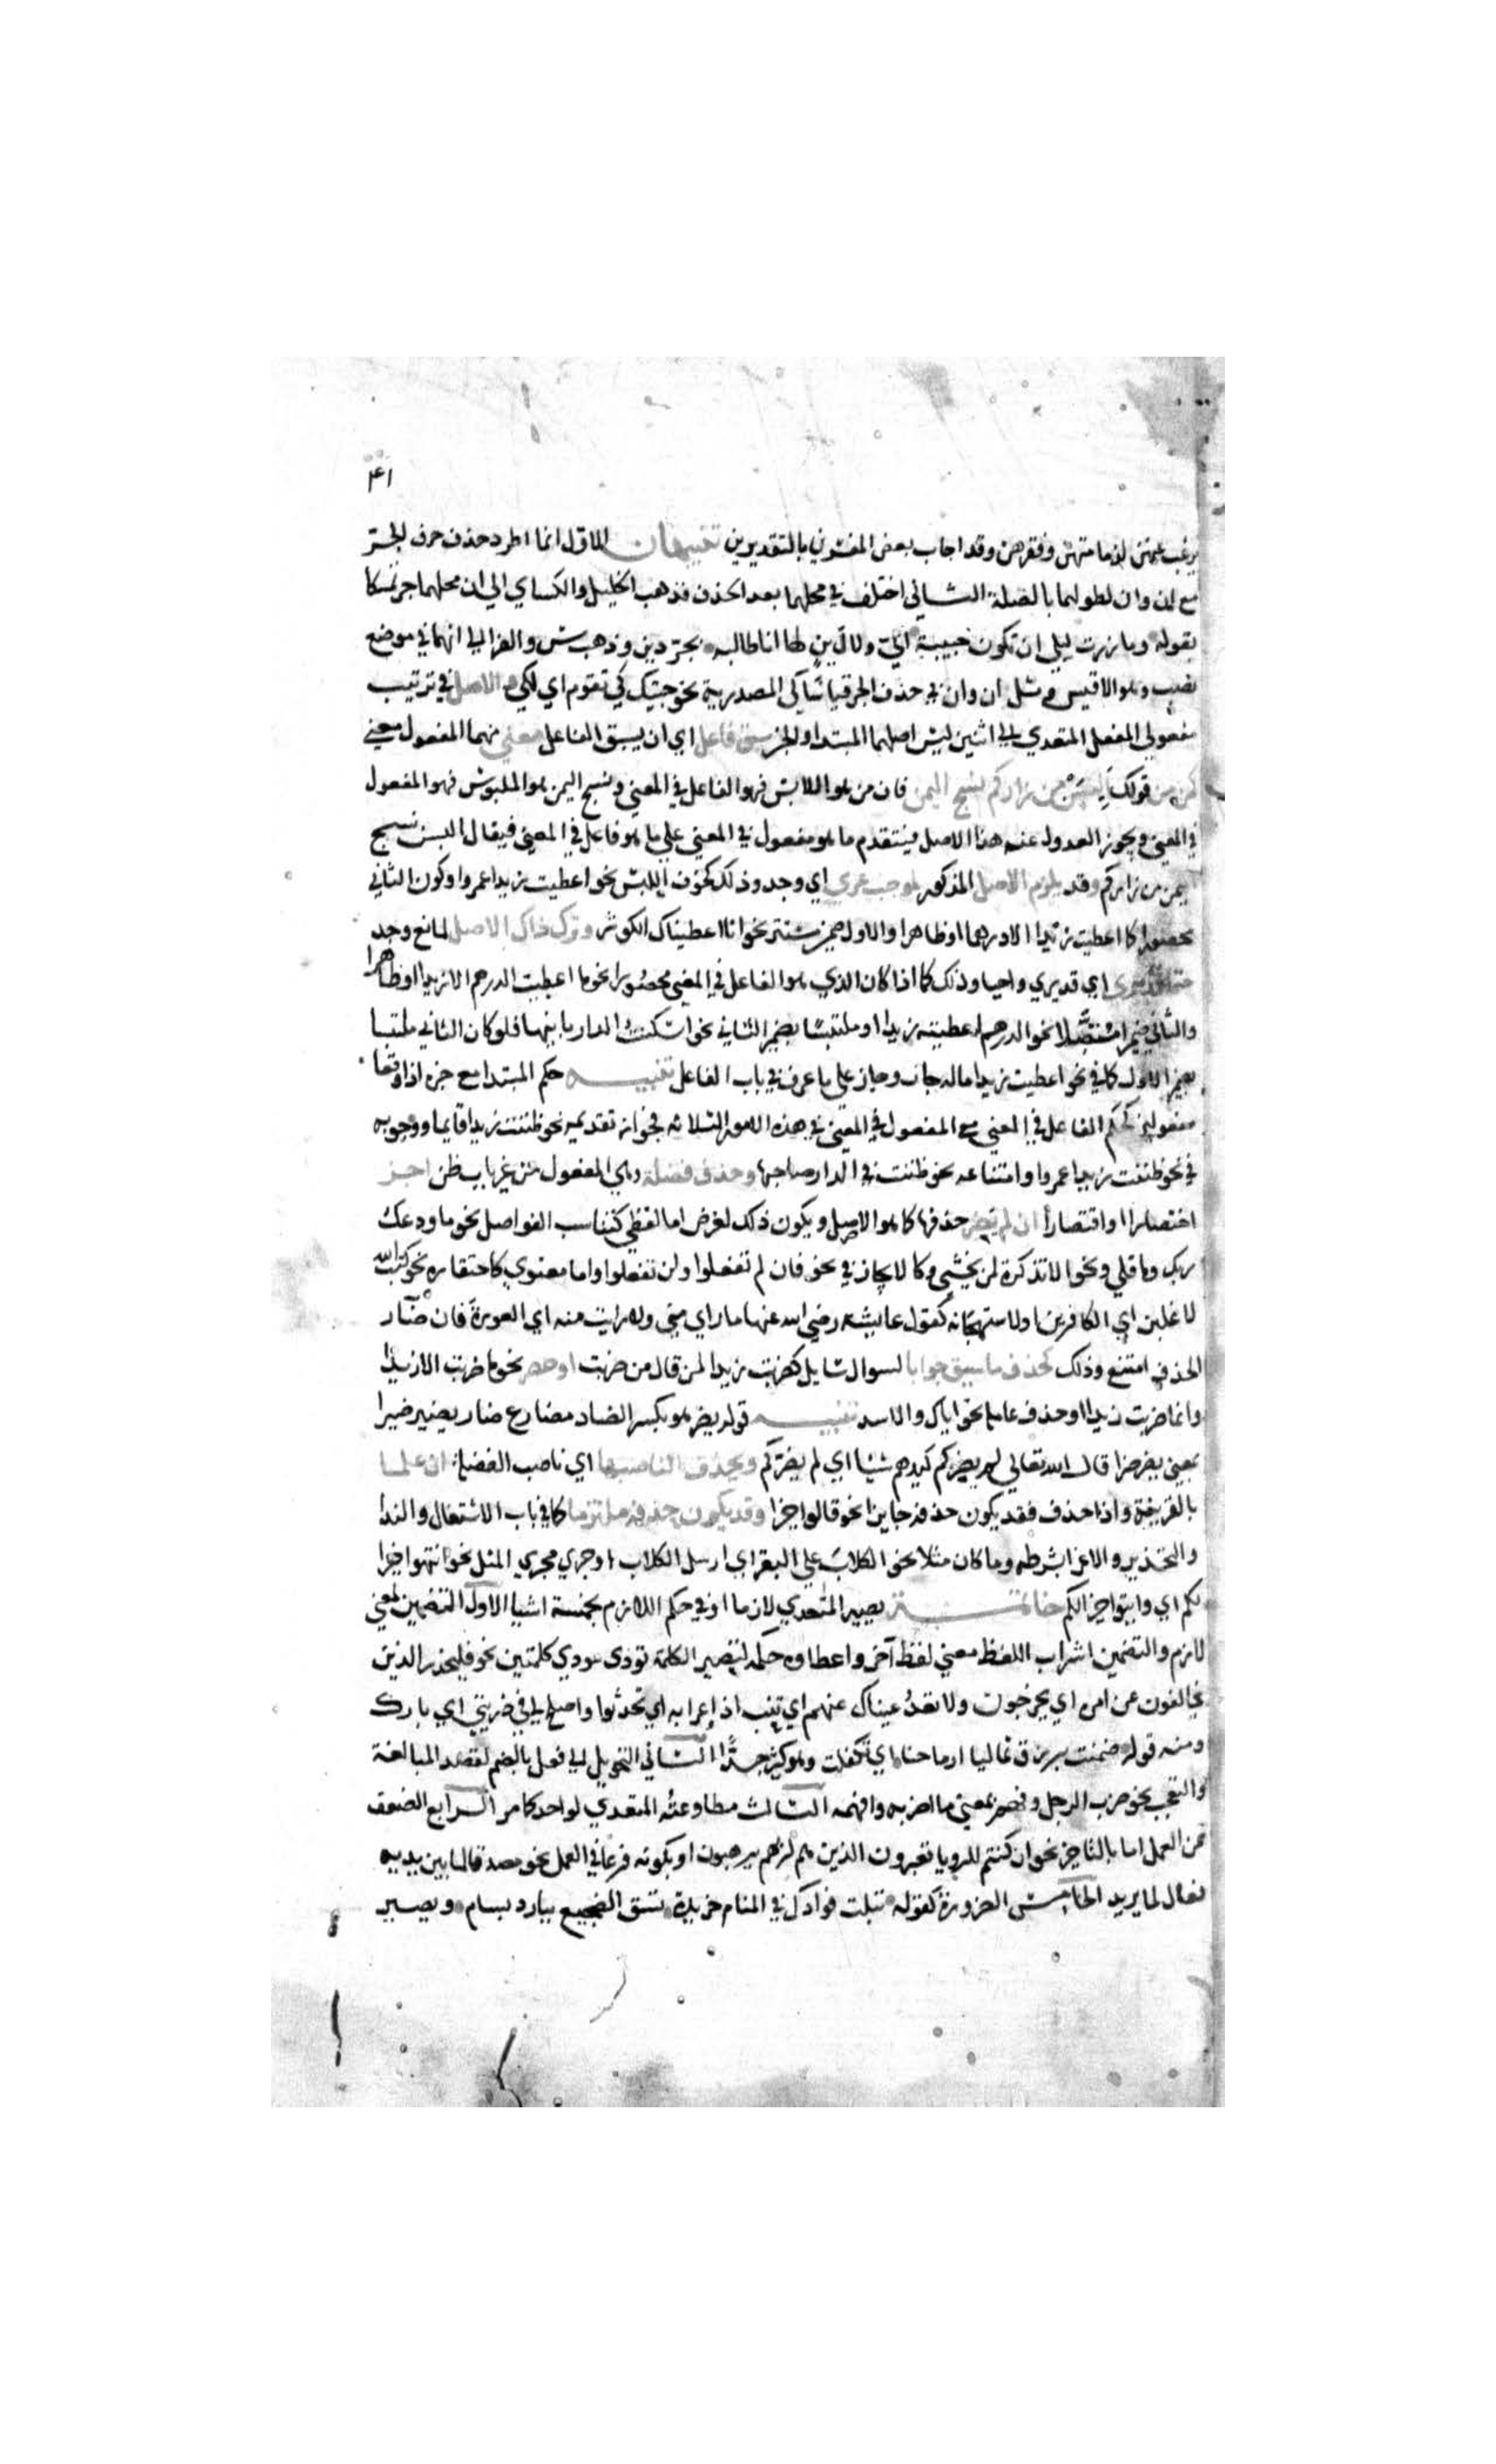 ٤١
يرغب عنهن لدمامتهن وفقرهن وقد اجاب بعض المفسرين بالتقديرين تنبيهان الاول انما اطرد حذف حرف الجر
مع ان وان لطولهما بالصلة الثاني اختلف في محلهما بعد الحذف فذهب الخليل والكساي الي ان محلهما جر تمسكا
بقوله وما زرت ليلى ان تكون حبيبة الي ولا دين لها انا طالبه بجر دين وذهب س والفرا الي انهما في موضع
نصب وهو الاقيس ومثل ان وان في حذف الجر قياسا كي المصدرية نحو جيتك كي تقوم اي لكي والاصل في ترتيب
مفعولي الفعل المتعدي الي اثنين ليس اصلهما المبتدا والخبر سبق فاعل اي ان يسبق الفاعل معني منهما المفعول معني
كمن من قولك البسن من زاركم نسج اليمن فان من هو اللابس فهو الفاعل في المعني ونسج اليمن هو الملبوس فهو المفعول
في المعني ويجوز العدول عن هذا الاصل فيتقدم ما هو مفعول في المعني علي ما هو فاعل في المعني فيقال البسن نسج
اليمن من زاركم وقد يلزم الاصل المذكور لموجب عري اي وجد وذلك كخوف اللبس نحو اعطيت زيدا عمروا وكون الثاني
محصورا كما اعطيت زيدا الا درهما او ظاهرا والاول ضمير مستتر نحو انا اعطيناك الكوثر وترك ذاك الاصل لمانع وجد
حتما قد يرى اي قد يري واجبا وذلك كما اذا كان الذي هو الفاعل في المعني محصورا نحو ما اعطيت الدرهم الا زيدا او ظاهرا
والثاني ضميرا متصلا نحو الدرهم اعطيته زيدا او ملتبسا بضمير الثاني نحو اسكنت الدار بانيها فلو كان الثاني ملتبسا
بضمير الاول كما في نحو اعطيت زيدا ماله جاز وجاز علي ما عرف في باب الفاعل تنبيه حكم المبتدا مع خبره اذا وقعا
مفعولين كحكم الفاعل في المعني مع المفعول في المعني في هذه الامور الثلاثه فجوازه تقديمه نحو ظننت زيدا قايما ووجوبه
في نحو ظننت زيدا عمروا وامتناعه نحو ظننت في الدار صاحبها وحذف فضلة وهي المفعول من غير باب ظن اجز
اختصارا واقتصارا ان لم يضر حذفها كما هو الاصل ويكون ذلك لغرض اما لفظي كتناسب الفواصل نحو ما ودعك
ربك وما قلي ونحو الا تذكرة لمن يخشي وكالايجاز في نحو فان لم تفعلوا ولن تفعلوا واما معنوي كاحتقاره نحو كتب الله
لاغلبن اي الكافرين او لاستهجانه كقول عايشه رضي الله عنها ما راي مني ولا رايت منه اي العورة فان ضار
الحذف امتنع وذلك كحذف ما سيق جوابا لسوال سايل كضربت زيدا لمن قال من ضربت او حصر نحو ما ضربت الا زيدا
وانما ضربت زيدا او حذف عامله نحو اياك والاسد تنبيه قوله يضر هو بكسر الضاد مضارع ضار يضير ضيرا
بمعني يضر ضرا قال الله تعالي لا يضركم كيدهم شيئا اي لم يضركم ويحذف الناصبها اي ناصب الفضلة ان علما
بالقرينة واذا حذف فقد يكون حذفه جايزا نحو قالوا خيرا وقد يكون حذفه ملتزما كما في باب الاشتغال والندا
والتحذير والاغرا بشرطه وما كان مثلا نحو الكلاب علي البقر اي ارسل الكلاب او جري مجري المثل نحو انتهوا خيرا
لكم اي وايتوا خيرا لكم خاتمة يصير المتعدي لازما او في حكم اللازم بخمسة اشيا الاول التضمين لمعني
لازم والتضمين اشراب اللفظ معني لفظ آخر واعطاوه حكمه لتصير الكلمة تودي مودي كلمتين نحو فليحذر الذين
يخالفون عن امره اي يخرجون ولا تعد عيناك عنهم اي تنب اذاعوا به اي تحدثوا واصلح لي في ذريتي اي بارك
ومنه قوله ضمنت برزق عيالنا ارماحنا اي تكفلت وهو كثير جدا الثاني التحويل الي فعل بالضم لقصد المبالغة
والتعجب نحو ضرب الرجل وفهم بمعني ما اضربه وافهمه الثالث مطاوعته المتعدي لواحد كما مر الرابع الضعف
عن العمل اما بالتاخير نحو ان كنتم للرويا تعبرون الذين هم لربهم يرهبون او بكونه فرعا في العمل نحو مصدقا لما بين يديه
فعال لما يريد الخامس الضرورة كقوله تبلت فوادك في المنام خريدة تسقي الضجيع ببارد بسام ويصير